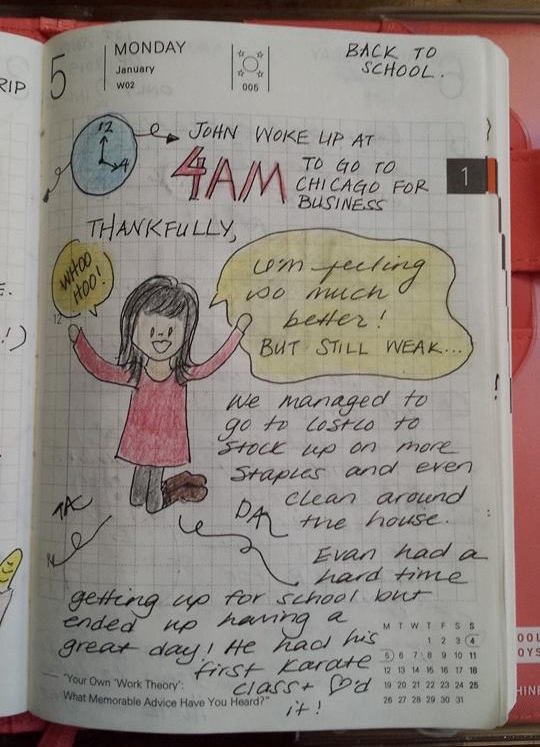 RIP
5
MONDAY
January
W02
005
BACK TO
SCHOOL.
12
4
JOHN WOKE UP AT
4AM
TO GO TO
CHICAGO FOR
BUSINESS
1
THANKFULLY,
WHOO
HOO!
I'm feeling
so much
better!
BUT STILL WEAK...
12
E.
!)
We managed to
go to Costco to
stock up on more
staples and even
clean around
the house.
TA
DA
Evan had a
hard time
getting up for school but
ended up having a
great day! He had his
first karate
class + ♡'d
it!
M T W T F S S
1 2 3 4
5 6 7 8 9 10 11
12 13 14 15 16 17 18
19 20 21 22 23 24 25
26 27 28 29 30 31
"Your Own 'Work Theory':
What Memorable Advice Have You Heard?"